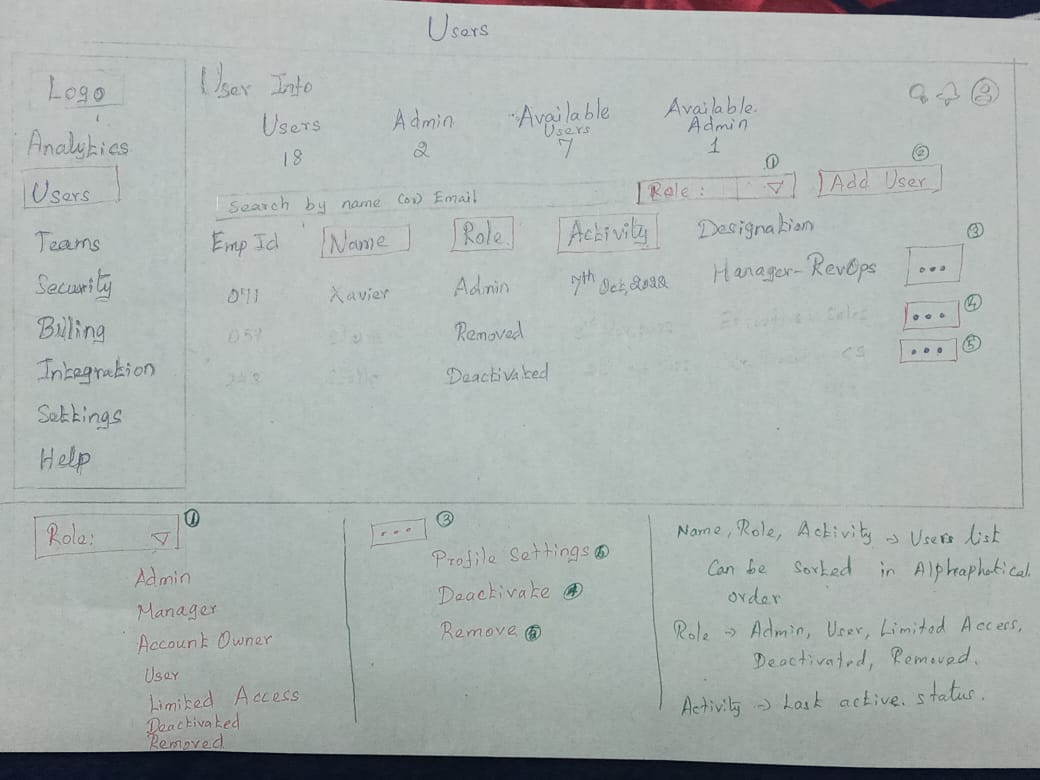 Users
Logo
Analytics
Users
Teams
Security
Billing
Integration
Settings
Help
User Info
Users Admin Available Users Available Admin
18 2 7 1
①
②
Search by name (or) Email Role: Add User
Emp Id Name Role Activity Designation
③
071 Xavier Admin 7th Oct, 2022 Manager-RevOps ...
057 Removed ... ④
Deactivated CS ... ⑤
Role: ①
Admin
Manager
Account Owner
User
Limited Access
Deactivated
Removed
... ③
Profile Settings
Deactivate ④
Remove ⑤
Name, Role, Activity → Users list
Can be Sorted in Alphraphetical
order
Role → Admin, User, Limited Access,
Deactivated, Removed.
Activity → Last active status.